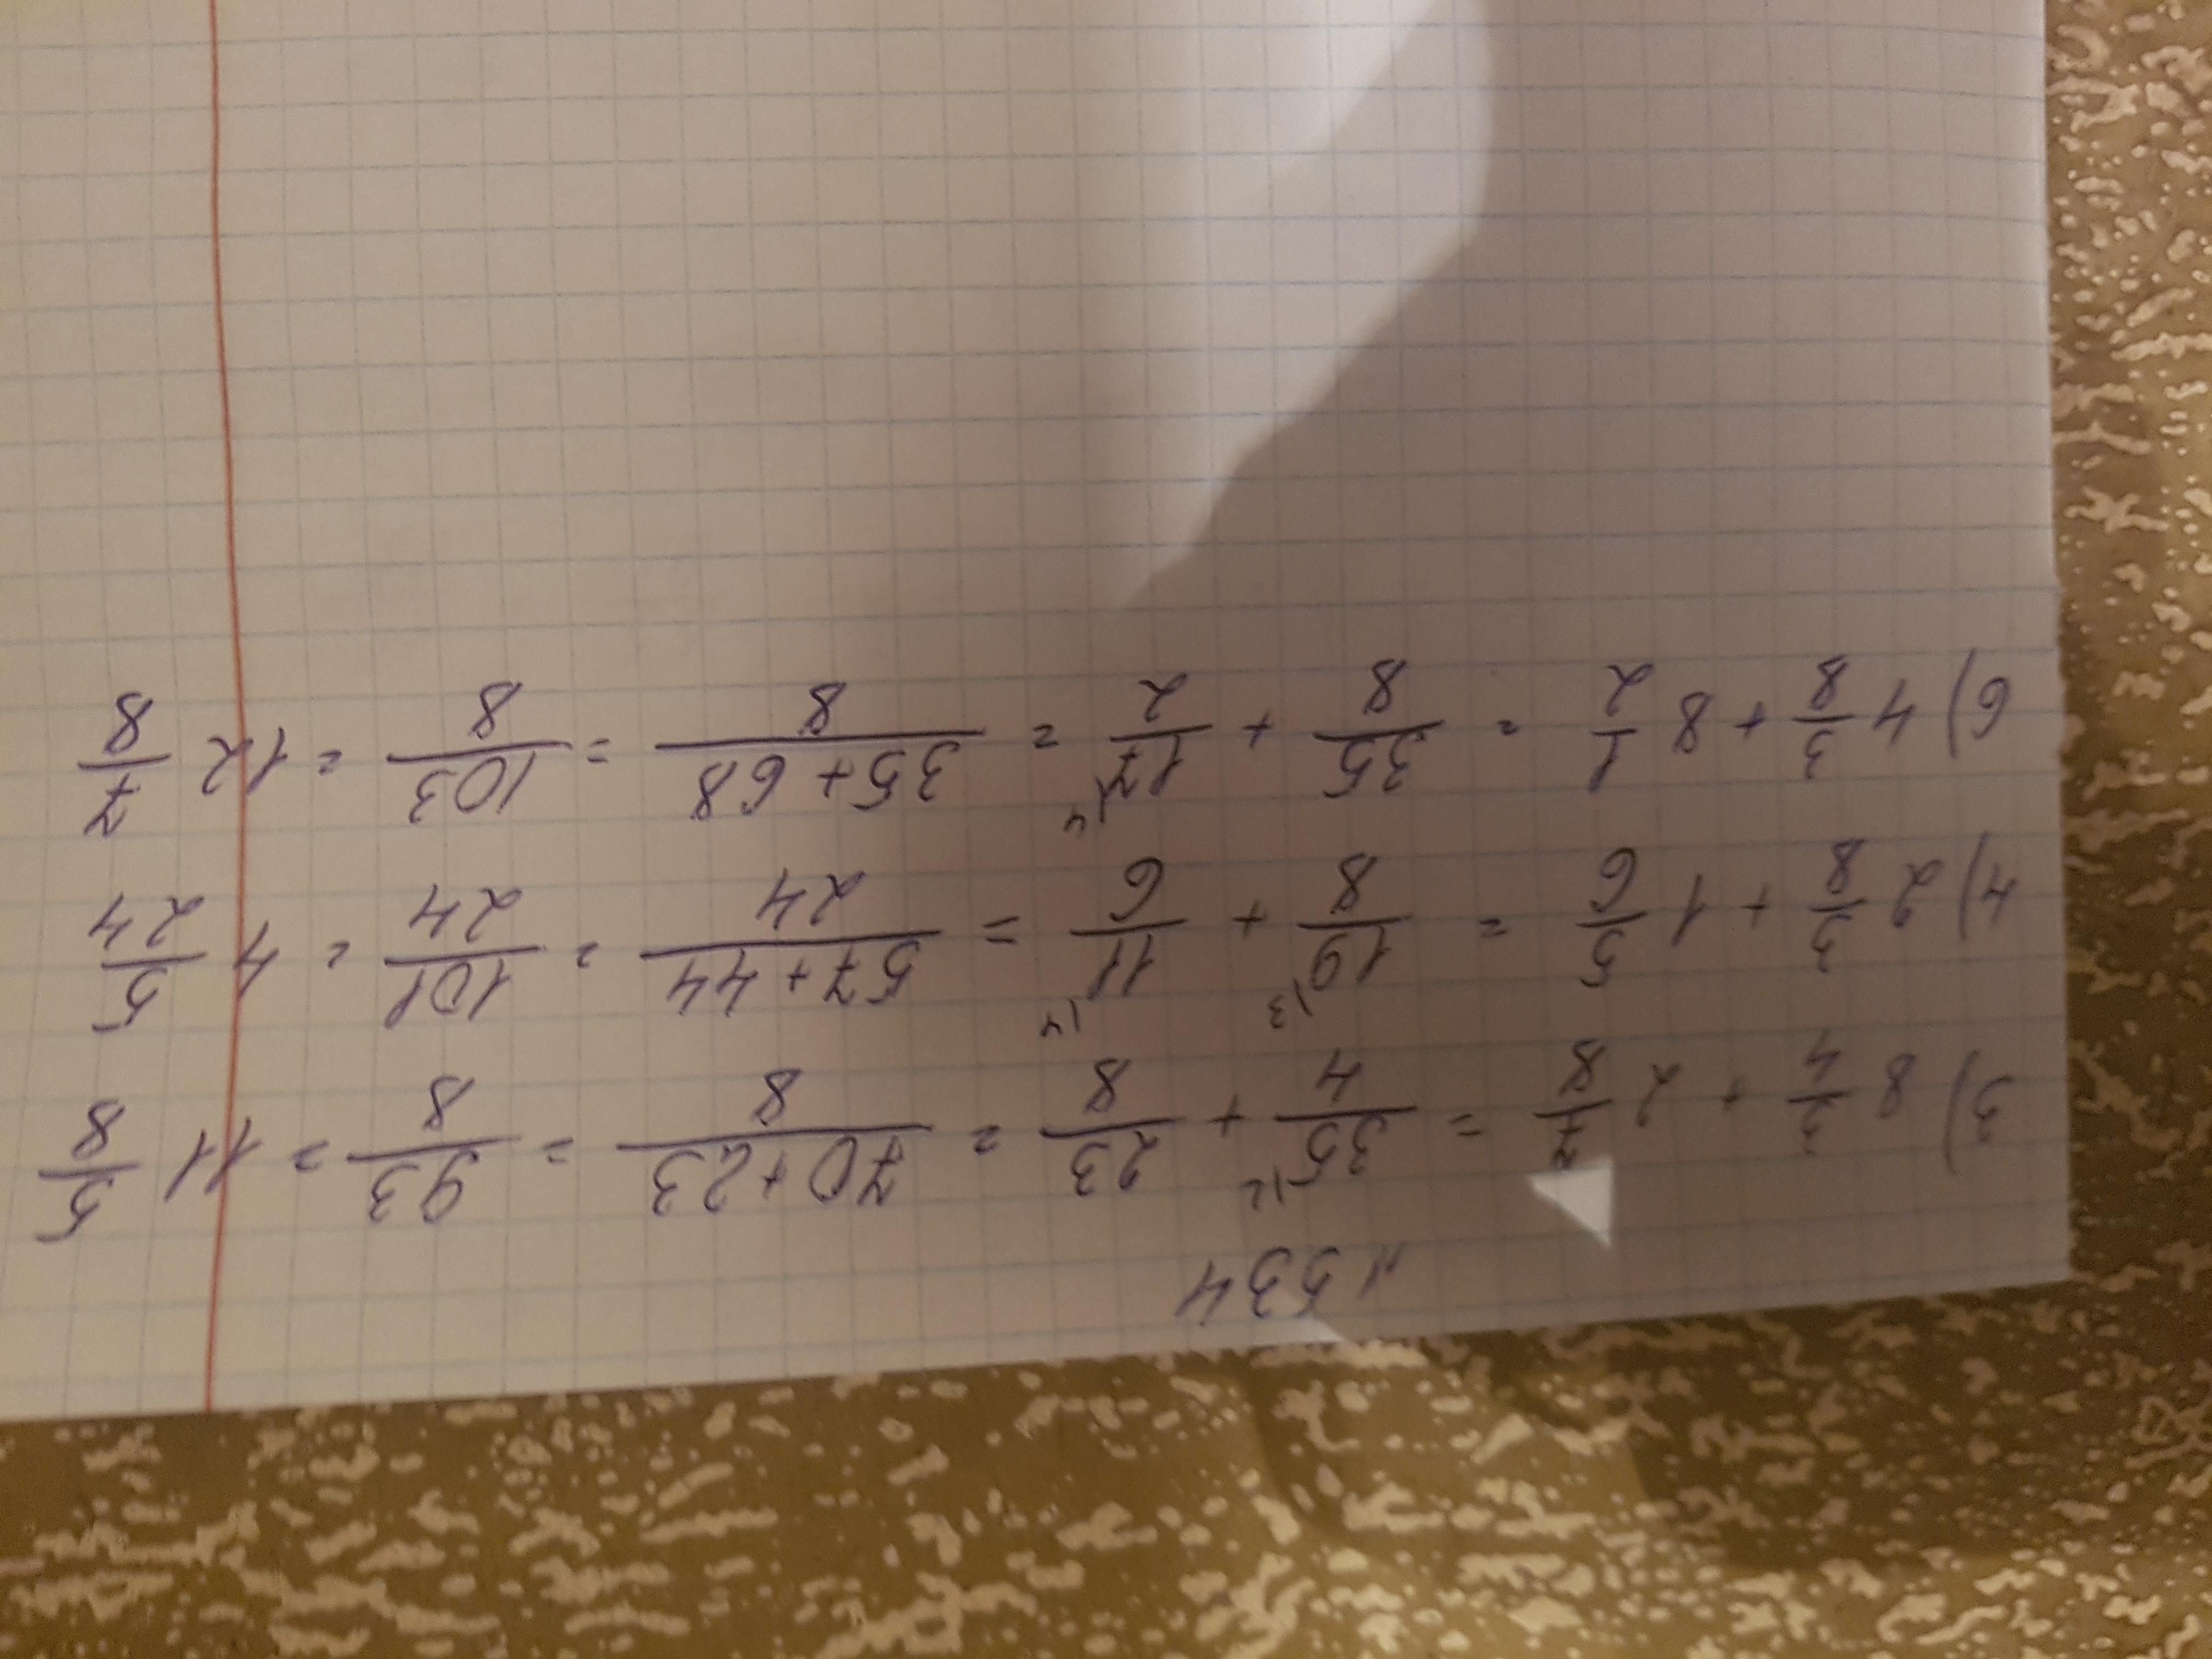 №534
3) 8 3/4 + 2 7/8 = 35\2/4 + 23/8 = 70+23/8 = 93/8 = 11 5/8
4) 2 3/8 + 1 5/6 = 19\3/8 + 11\4/6 = 57+44/24 = 101/24 = 4 5/24
6) 4 3/8 + 8 1/2 = 35/8 + 17\4/2 = 35+68/8 = 103/8 = 12 7/8